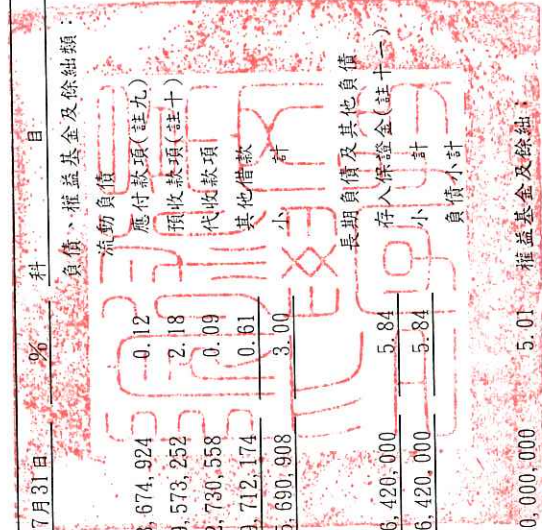 7月31日 % 科 目
負債、權益基金及餘絀類：
流動負債
,674,924 0.12 應付款項(註九)
9,573,252 2.18 預收款項(註十)
2,730,558 0.09 代收款項
9,712,174 0.61 其他借款
5,690,908 3.00 小 計
長期負債及其他負債
6,420,000 5.84 存入保證金(註十一)
6,420,000 5.84 小 計
負債小計
0,000,000 5.01 權益基金及餘絀：